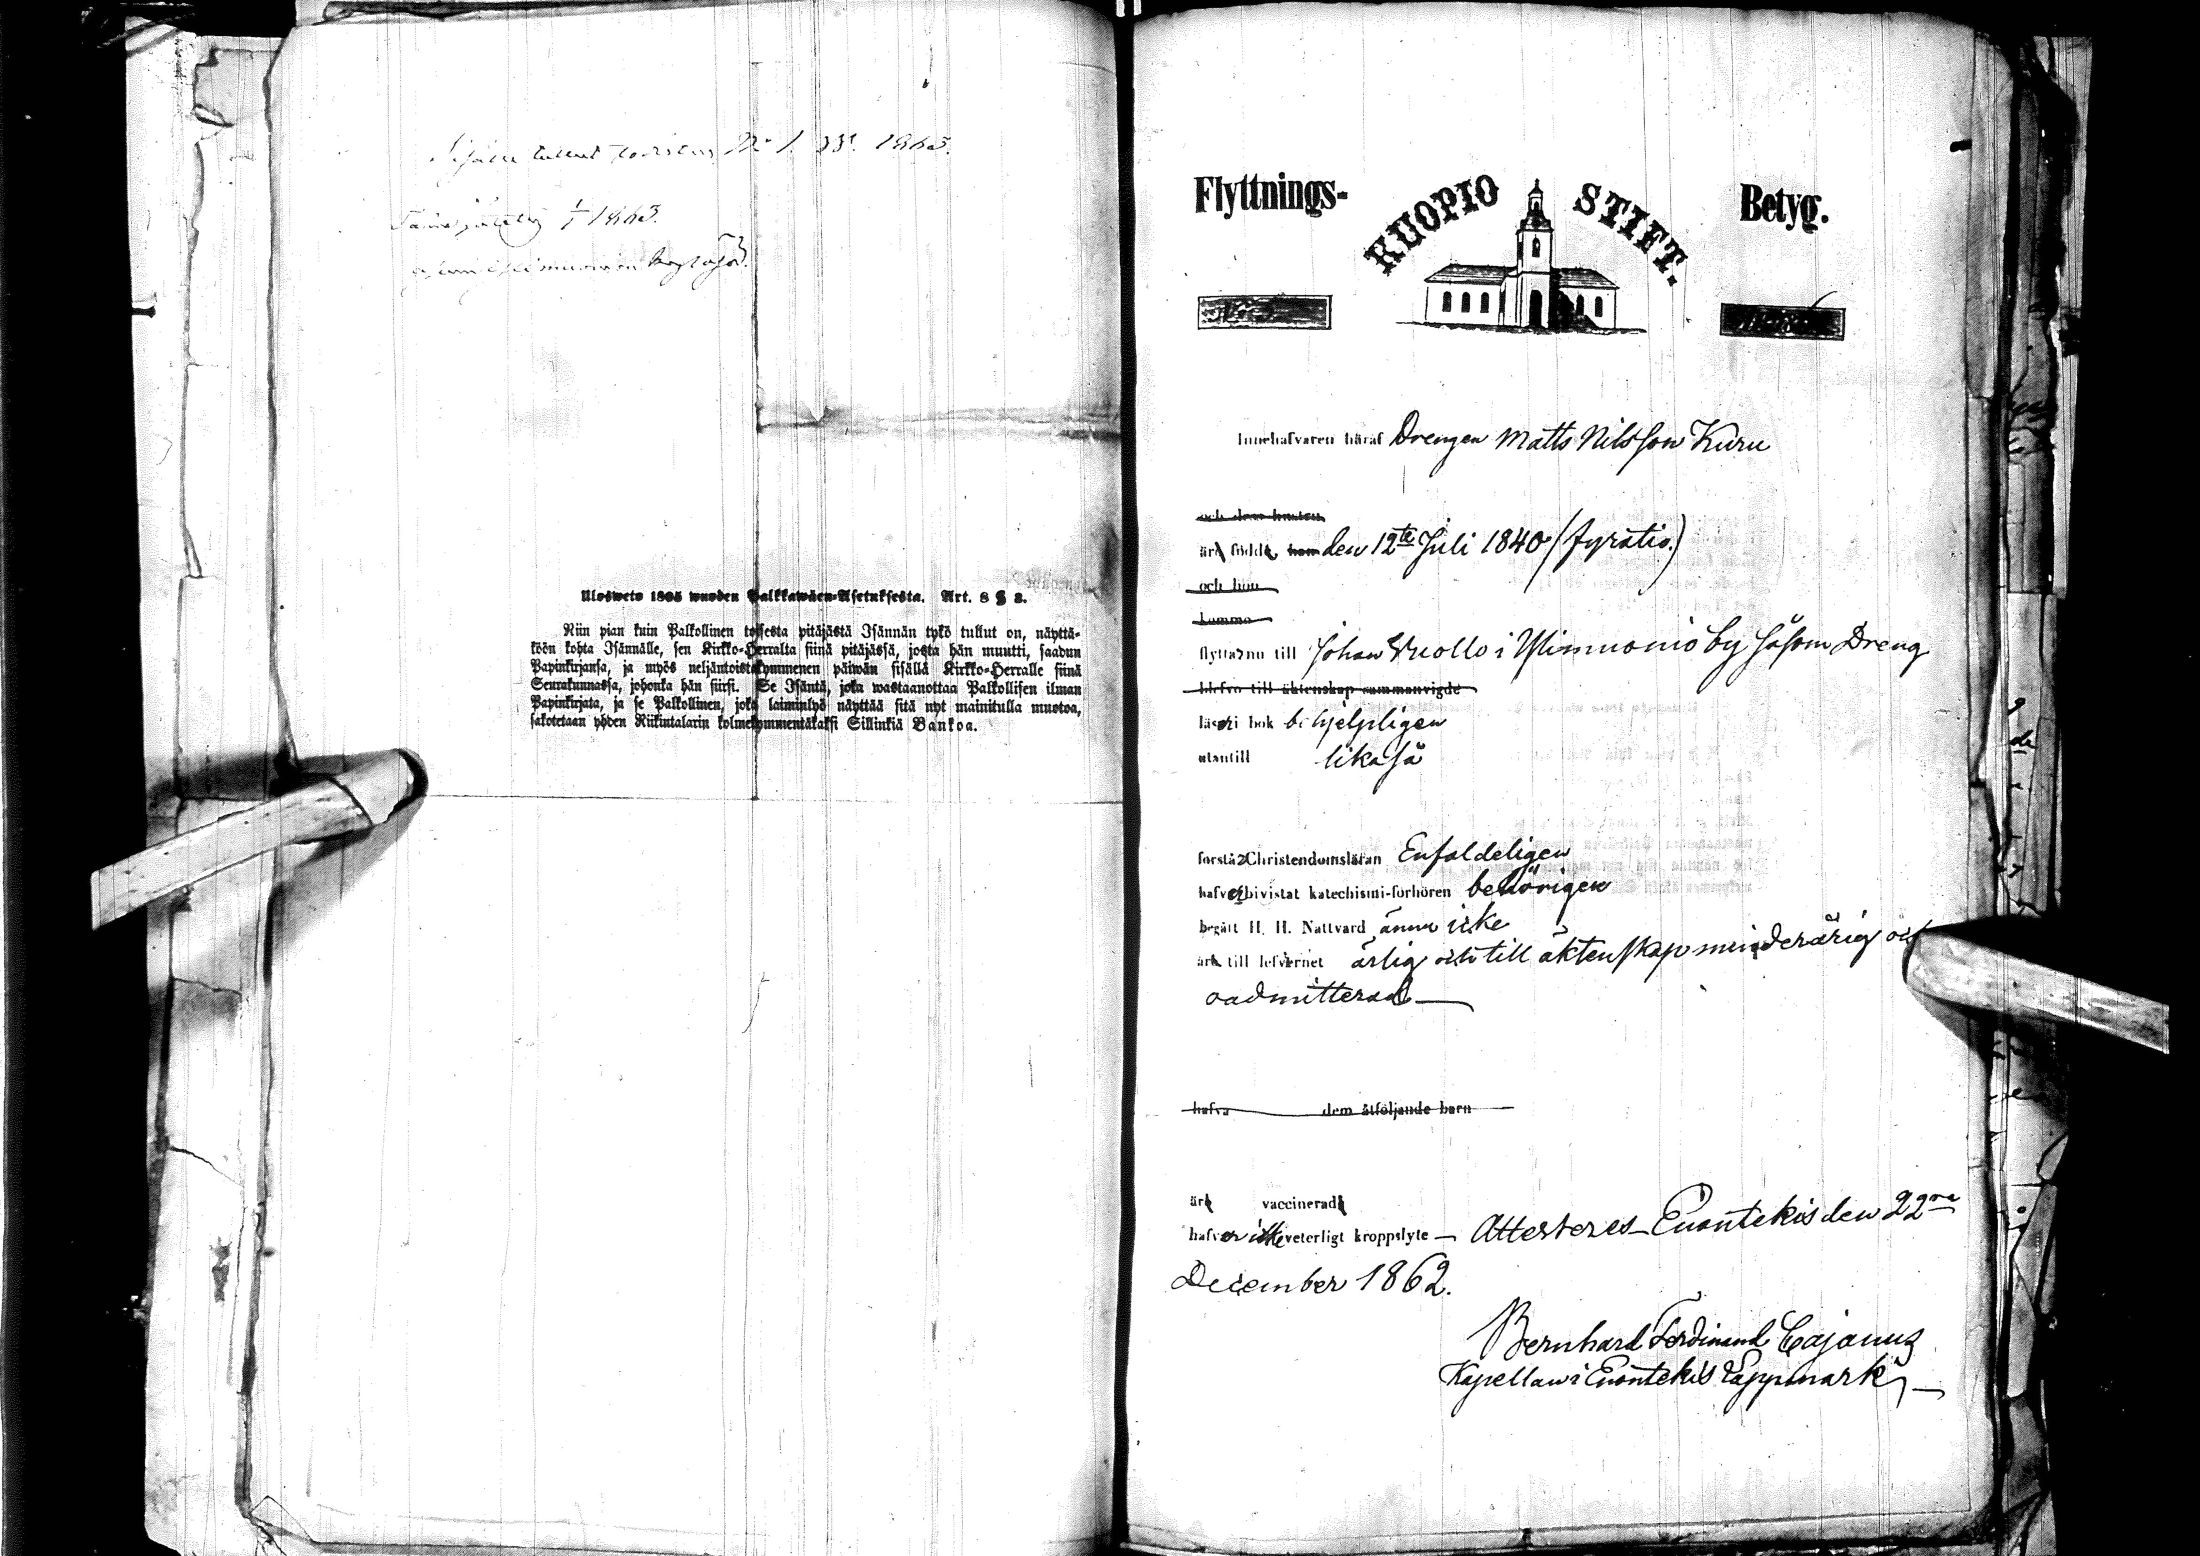 1863.
1863.
Ulosweto 1805 wuoden Palkkawäen-Asetuksesta. Art. 8 § 3.
Niin pian kuin Palkollinen toisesta pitäjästä Isännän tykö tullut on, näyttä-
köön kohta Isännälle, sen Kirkko-Herralta siinä pitäjässä, josta hän muutti, saadun
Papinkirjansa, ja myös neljäntoistakymmenen päiwän sisällä Kirkko-Herralle siinä
Seurakunnassa, johonka hän siirsi. Se Isäntä, joka wastaanottaa Palkollisen ilman
Papinkirjata, ja se Palkollinen, joka laiminlyö näyttää sitä nyt mainitulla muotoa,
sakotetaan yhden Riikintalarin kolmekymmentäkaksi Sillinkiä Bankoa.
Flyttnings- KUOPIO STIFT. Betyg.
Innehafvaren häraf Drengen Matts Nilsson Kuru
och dess hustru
är född den 12te Juli 1840 (fyratio.)
och hon
komma
flyttar nu till Johan Vuollo i Ylimuonio by såsom Dreng
blefvo till äktenskap sammanvigde
läser i bok behjelpligen
utantill likaså
förstår Christendomsläran Enfaldeligen
hafver bivistat katechismi-förhören behörigen
begått H. H. Nattvard ännu icke
är till lefvernet ärlig och till äktenskap minderårig och
oadmitterad
hafva dem åtföljande barn
är vaccinerad
hafver icke veterligt kroppslyte – Attesteres Enontekis den 22ra
December 1862.
Bernhard Ferdinand Cajanus
Kapellan i Enontekis Lappmark